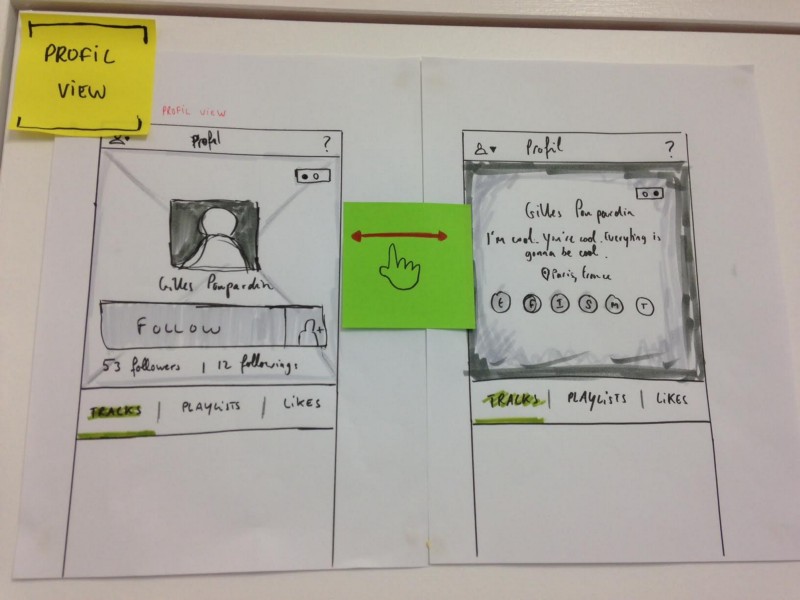 PROFIL
VIEW
PROFIL VIEW
Profil ?
Gilles Poupardin
FOLLOW
53 followers | 12 followings
TRACKS | PLAYLISTS | LIKES
Profil ?
Gilles Poupardin
I'm cool. You're cool. Everything is
gonna be cool.
@Paris, France
F I S M T
TRACKS | PLAYLISTS | LIKES